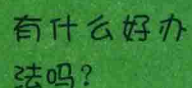 有什么好办
法吗？